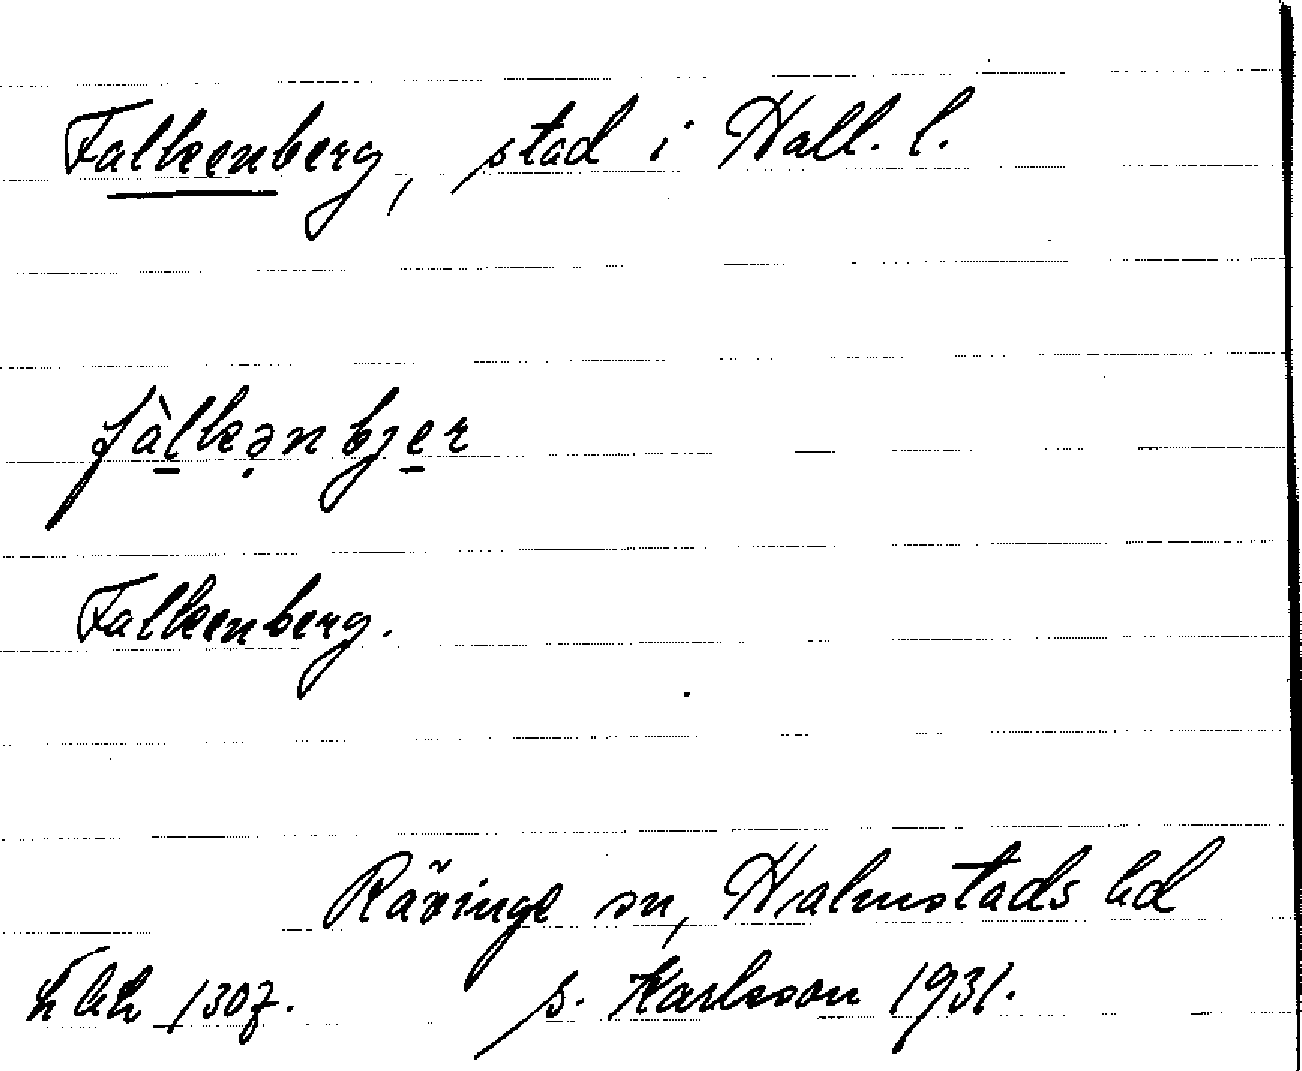 Falkenberg, stad i Hall. l.
fàlkənbjer
Falkenberg.
Rävinge sn, Halmstads hd
1307. s. Karlsson 1931.